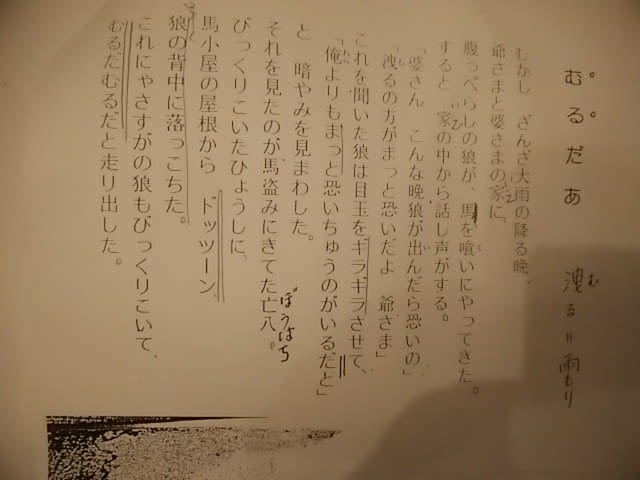 むるだあ
む
洩る＝雨もり
むかし　ざんざ大雨の降る晩、
爺さまと婆さまの家に、
腹っぺらしの狼が、馬を喰いにやってきた。
すると　家の中から話し声がする。
「婆さん　こんな晩狼が出んだら恐いの」
「洩るの方がまっと恐いだよ　爺さま」
これを聞いた狼は目玉をギラギラさせて、
「俺よりもまっと恐いちゅうのがいるだと」
と　暗やみを見まわした。
それを見たのが、馬盗みにきてた亡八。
ぼうはち
びっくりこいたひょうしに、
馬小屋の屋根から　ドッツーン、
狼の背中に落っこちた。
これにゃさすがの狼もびっくりこいて、
むるだむるだと走り出した。